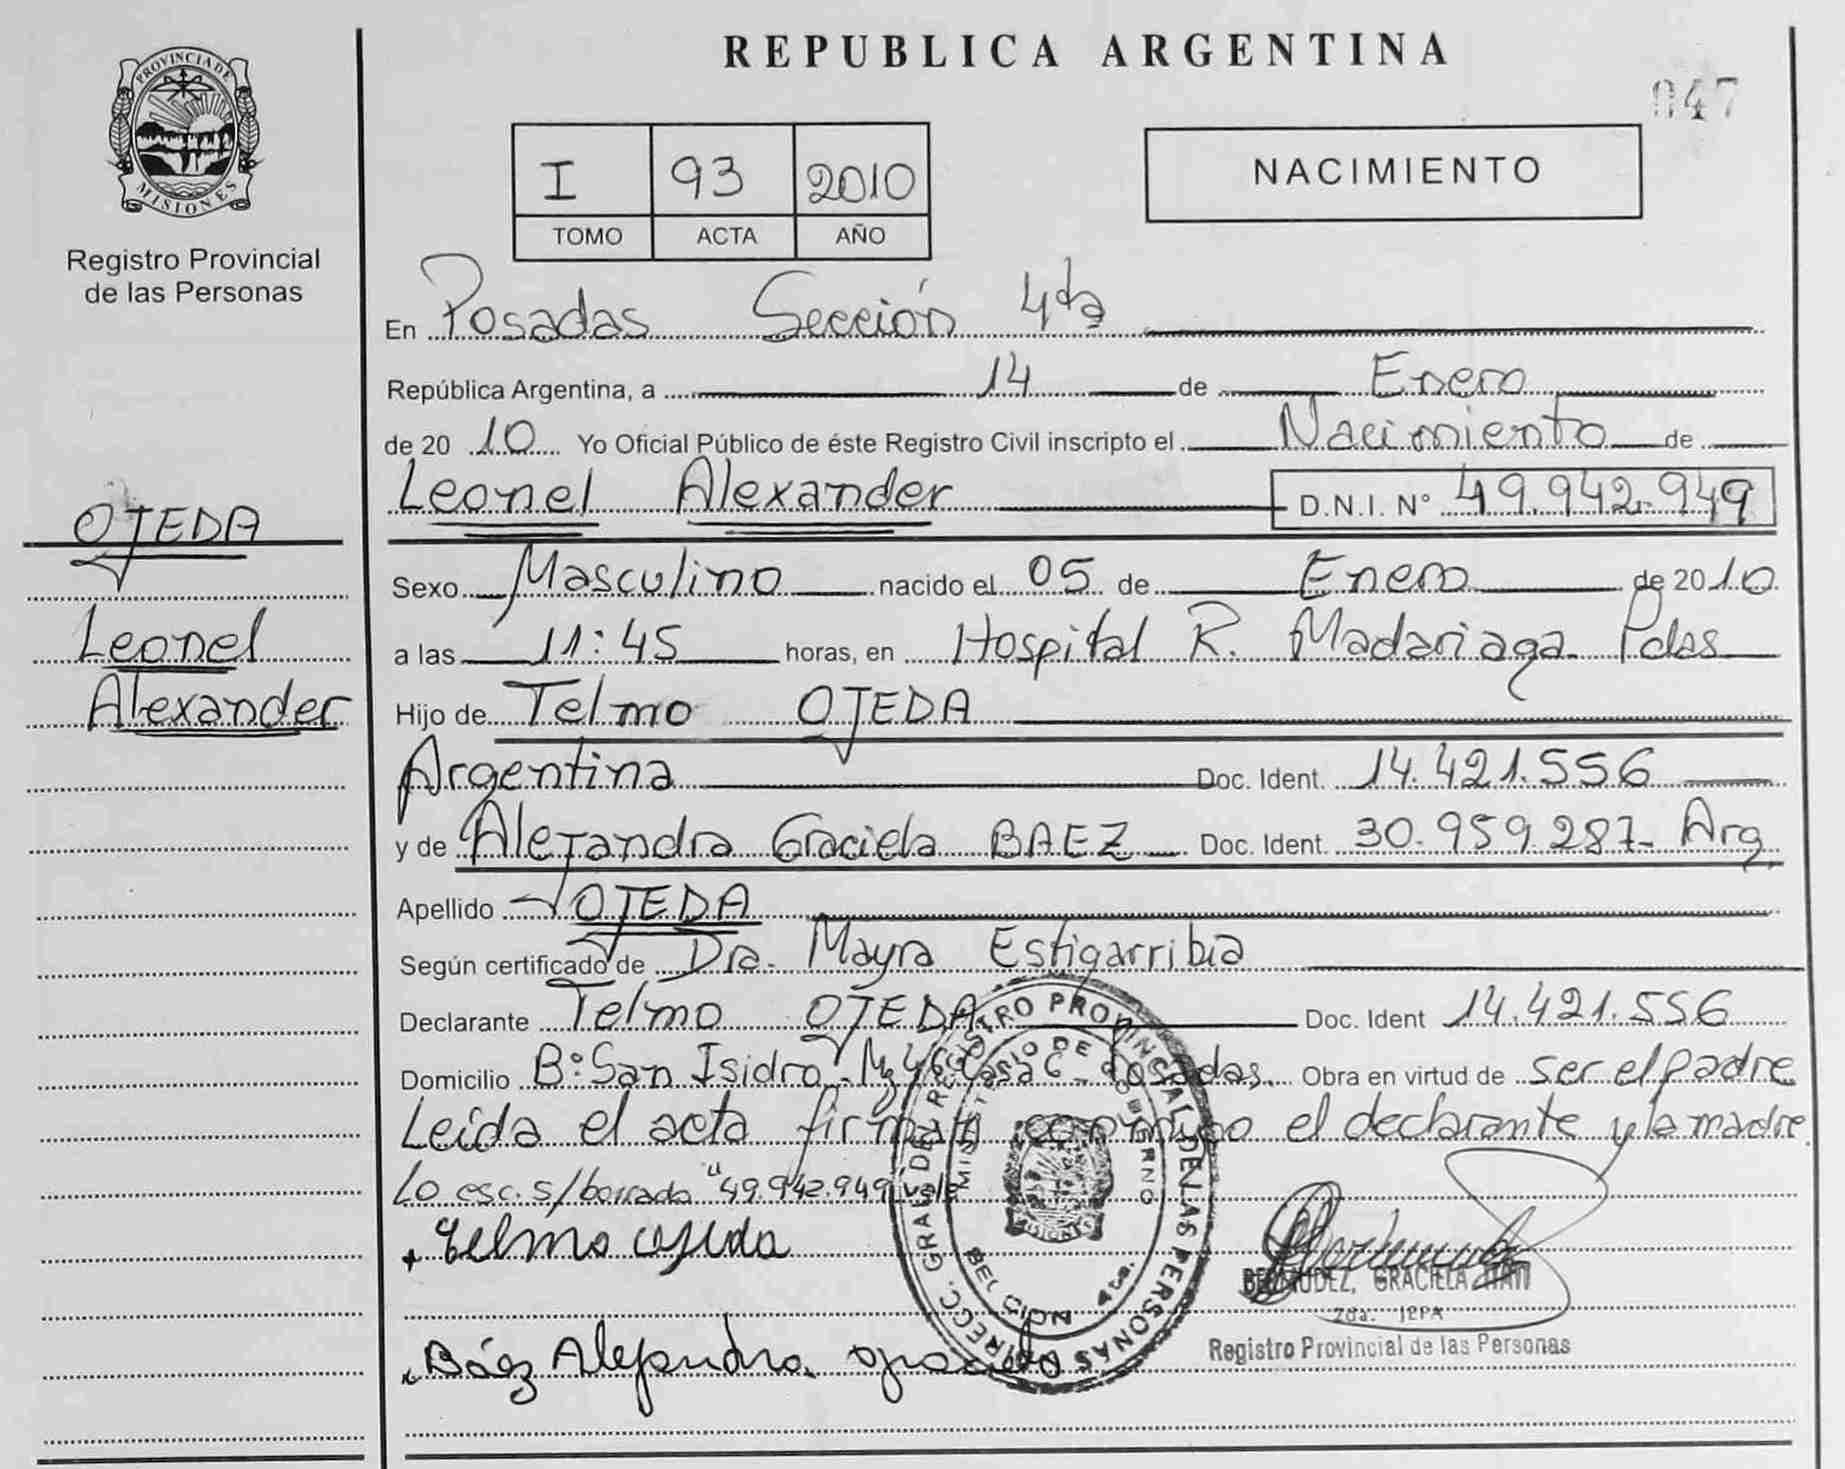 PROVINCIA DE
MISIONES
Registro Provincial
de las Personas
OJEDA
Leonel
Alexander
REPUBLICA ARGENTINA
047
I 93 2010
TOMO ACTA AÑO
NACIMIENTO
En Posadas Sección 4ta
República Argentina, a 14 de Enero
de 20 10 Yo Oficial Público de éste Registro Civil inscripto el Nacimiento de
Leonel Alexander D.N.I. N° 49.942.949
Sexo Masculino nacido el 05 de Enero de 2010
a las 11:45 horas, en Hospital R. Madariaga Pdas
Hijo de Telmo OJEDA
Argentina Doc. Ident. 14.421.556
y de Alejandra Graciela BAEZ Doc. Ident. 30.959.287- Arg.
Apellido OJEDA
Según certificado de Dra. Mayra Estigarribia
Declarante Telmo OJEDA Doc. Ident 14.421.556
Domicilio B° San Isidro Mz Casa Posadas. Obra en virtud de ser el padre
Leída el acta firman conmigo el declarante y la madre
Lo esc. s/borrado "49.942.949 vale
Telmo ojeda
Báez Alejandra graciela
REGISTRO PROVINCIAL DE LAS PERSONAS
MINISTERIO DE GOBIERNO
MISIONES
4ta.
BERMUDEZ, GRACIELA
2da. JEFA
Registro Provincial de las Personas